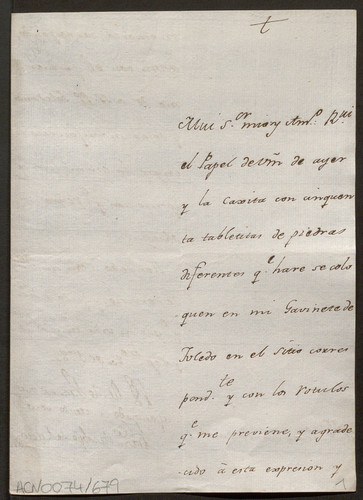 +
Mui S.or mio y Am.o Rui
el Papel de Vm de ayer
y la Caxita con cinquen
ta tabletitas de piedras
diferentes q.e hare se colo
quen en mi Gavinete de
Toledo en el sitio corres
pond.te y con los rotulos
q.e me previene, y agrade
cido à esta expresion y
ACN0074/679
1